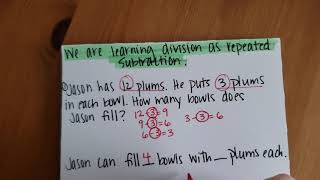 We are learning division as repeated
subtraction.
Jason has 12 plums. He puts 3 plums
in each bowl. How many bowls does
Jason fill? 12-3=9
9-3=6 3-3=6
6-3=3
Jason can fill 4 bowls with __ plums each.